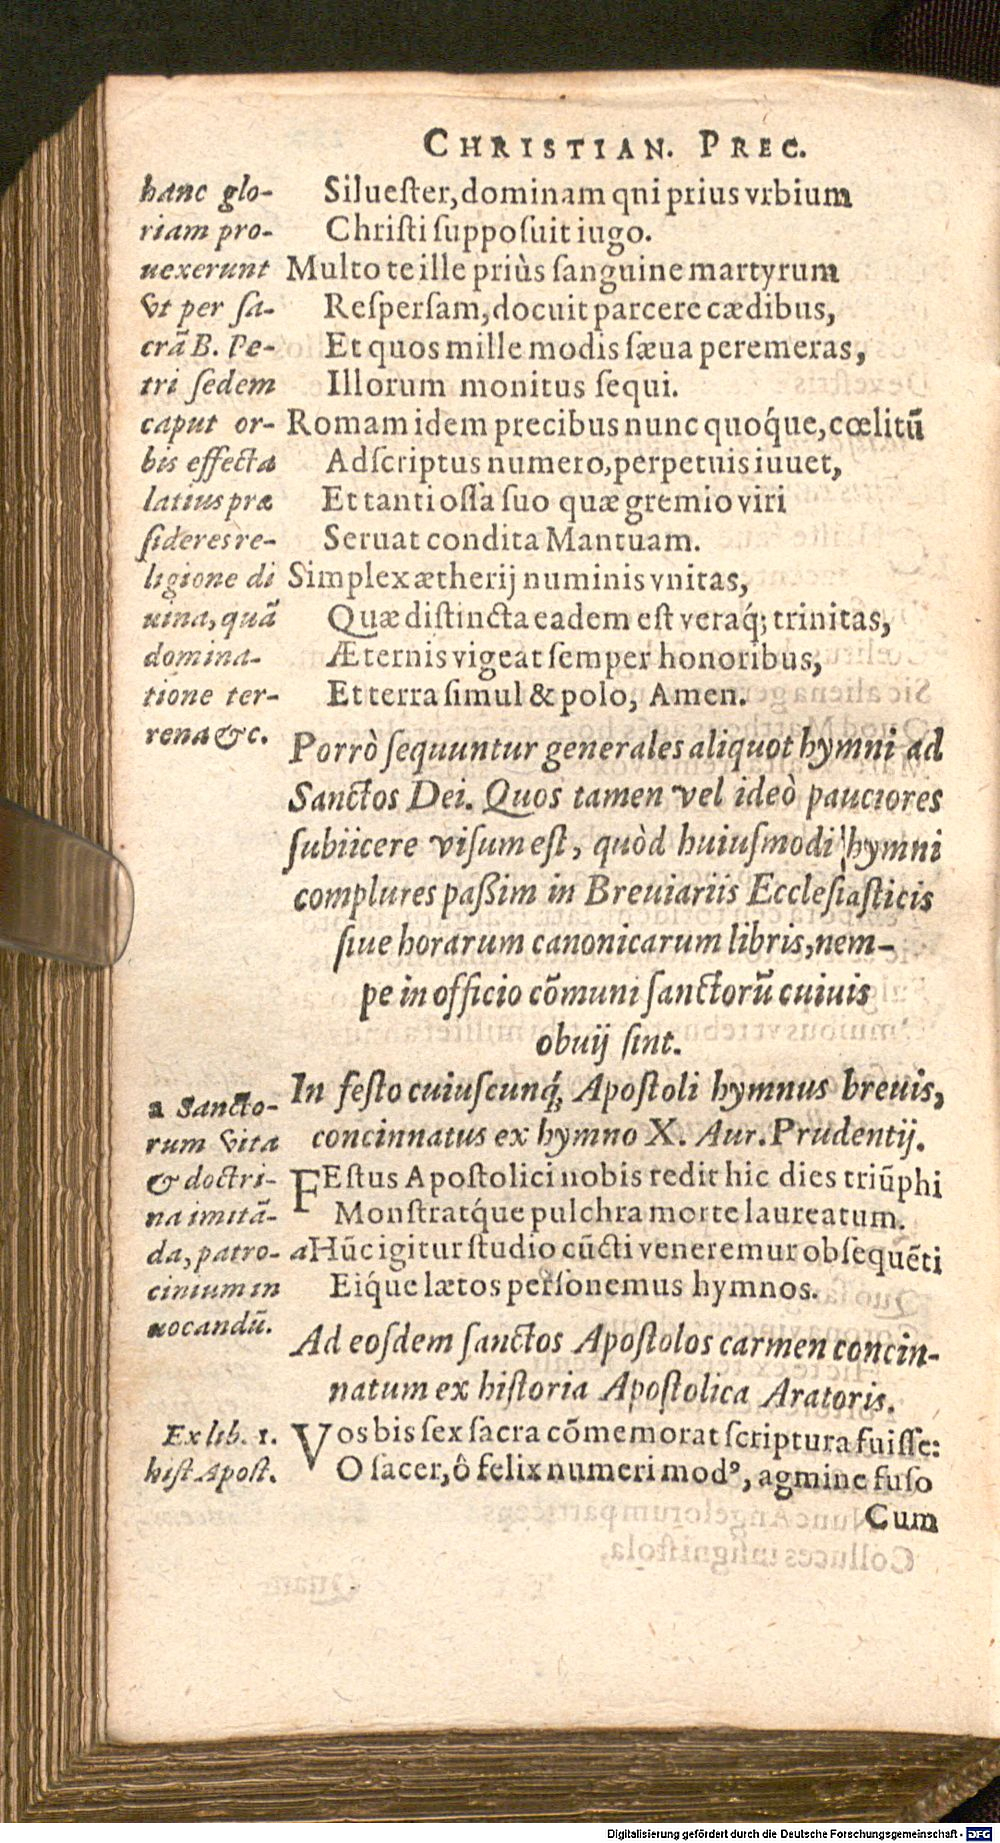 CHRISTIAN. PREC.
hanc glo-
riam pro-
uexerunt
vt per sa-
crā B. Pe-
tri sedem
caput or-
bis effecta
latius præ
sideres re-
ligione di
uina, quā
domina-
tione ter-
rena &c.
Siluester, dominam qni prius vrbium
Christi supposuit iugo.
Multo te ille priùs sanguine martyrum
Respersam, docuit parcere cædibus,
Et quos mille modis sæua peremeras,
Illorum monitus sequi.
Romam idem precibus nunc quoq́ue, cœlitū
Adscriptus numero, perpetuis iuuet,
Et tanti ossa suo quæ gremio viri
Seruat condita Mantuam.
Simplex ætherij numinis vnitas,
Quæ distincta eadem est veraq́; trinitas,
Æternis vigeat semper honoribus,
Et terra simul & polo, Amen.
Porrò sequuntur generales aliquot hymni ad
Sanctos Dei. Quos tamen vel ideò pauciores
subiicere visum est, quòd huiusmodi hymni
complures paßim in Breuiariis Ecclesiasticis
siue horarum canonicarum libris, nem-
pe in officio cōmuni sanctorū cuiuis
obuij sint.
In festo cuiuscunq́; Apostoli hymnus breuis,
concinnatus ex hymno X. Aur. Prudentij.
a Sancto-
rum vita
& doctri-
na imitā-
da, patro-
cinium in
uocandū.
FEstus Apostolici nobis redit hic dies triūphi
Monstratq́ue pulchra morte laureatum.
aHūc igitur studio cūcti veneremur obsequēti
Eiq́ue lætos personemus hymnos.
Ad eosdem sanctos Apostolos carmen concin-
natum ex historia Apostolica Aratoris.
Ex lib. 1.
hist Apost.
Vos bis sex sacra cōmemorat scriptura fuisse:
O sacer, ô felix numeri modꝰ, agmine fuso
Cum
Digitalisierung gefördert durch die Deutsche Forschungsgemeinschaft - DFG